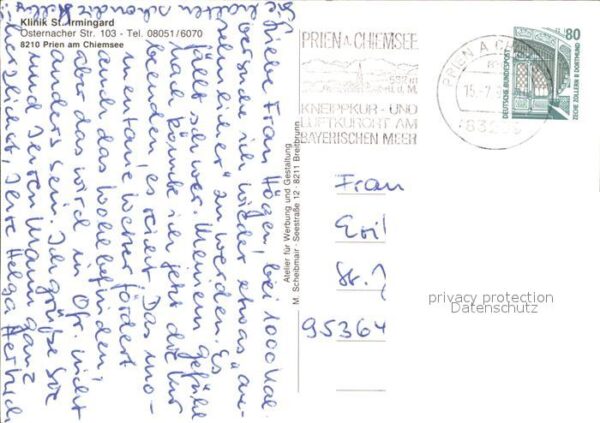 Klinik St. Irmingard
Osternacher Str. 103 - Tel. 08051/6070
8210 Prien am Chiemsee
Liebe Frau Högen! bei 1000 Kal.
versuche ich wieder etwas "an-
sehnlicher" zu werden. Es
fällt schwer. Meinem Gefühl
nach könnte ich jetzt die Kur
beenden, es reicht. Das
Wetter fördert
das Wohlbefinden,
aber das wird in Ofr. nicht
anders sein. Ich grüße Sie
und Ihren Mann ganz
herzlichst, Ihre Helga
Atelier für Werbung und Gestaltung
M. Scheibmair · Seestraße 12 · 8211 Breitbrunn
PRIEN A. CHIEMSEE
KNEIPPKUR - UND
LUFTKURORT AM
BAYERISCHEN MEER
PRIEN A CHIEMSEE
15.-7.
83209
80
DEUTSCHE BUNDESPOST
ZECHE ZOLLERN II DORTMUND
Frau
Str. 7
95364
privacy protection
Datenschutz